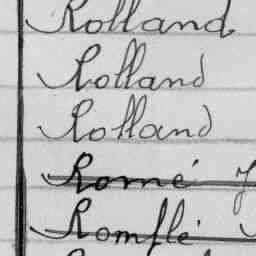 Rolland
Rolland
Rolland
Romé
Romflé